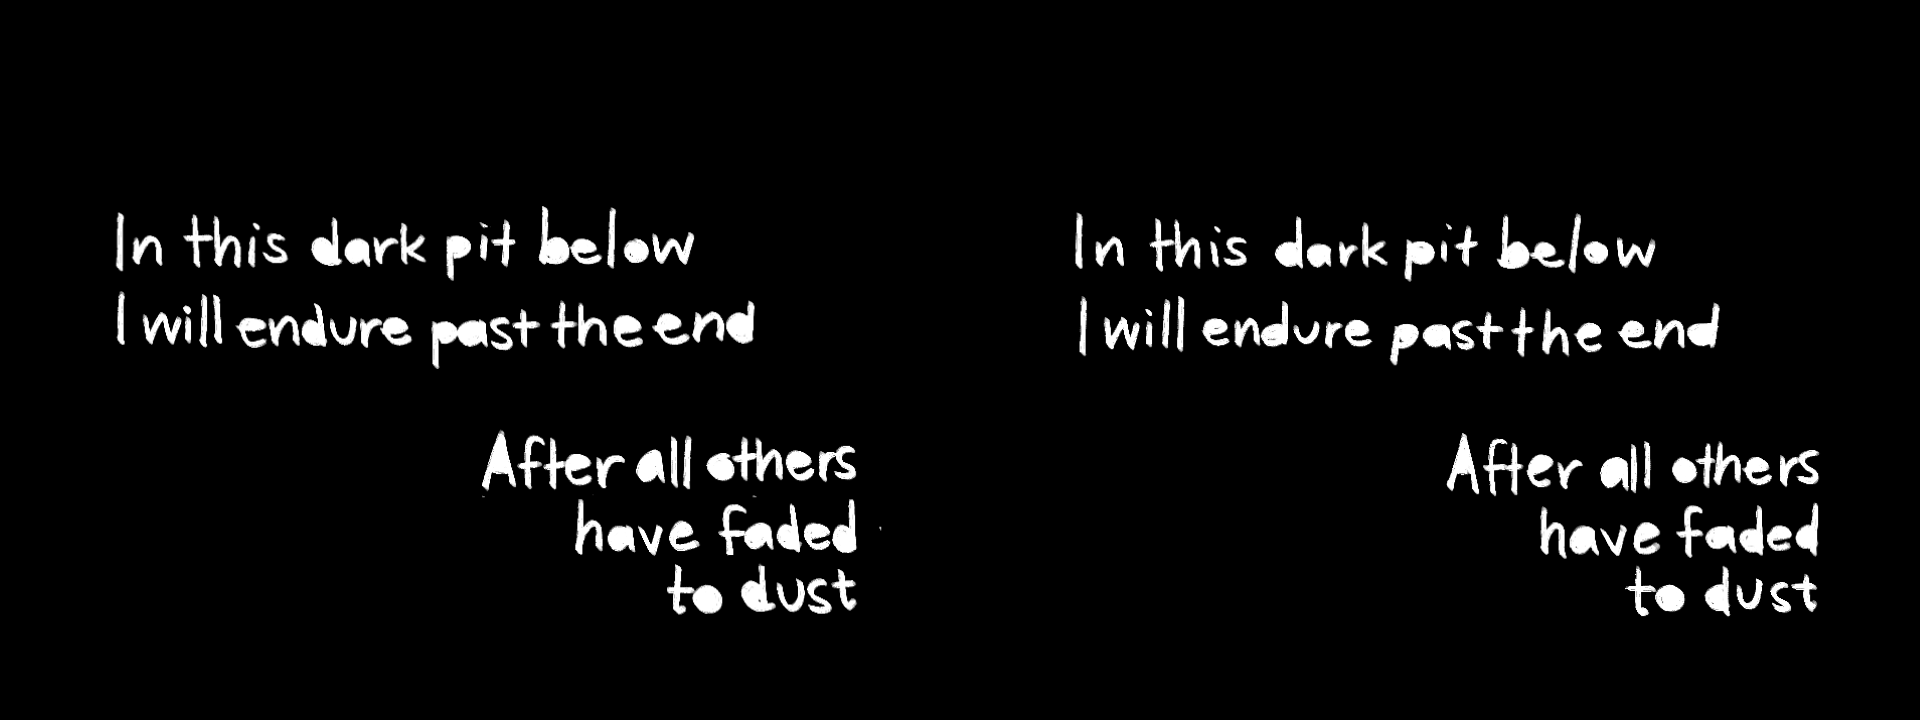 In this dark pit below
I will endure past the end
After all others
have faded
to dust
In this dark pit below
I will endure past the end
After all others
have faded
to dust